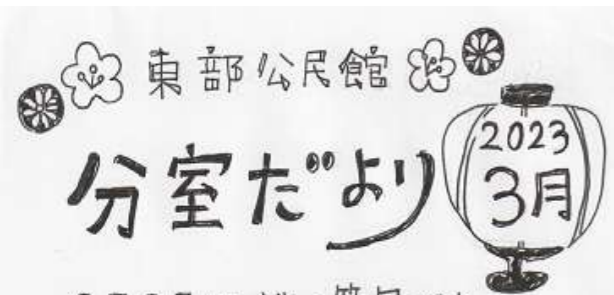 東部公民館
分室だより
2023
3月